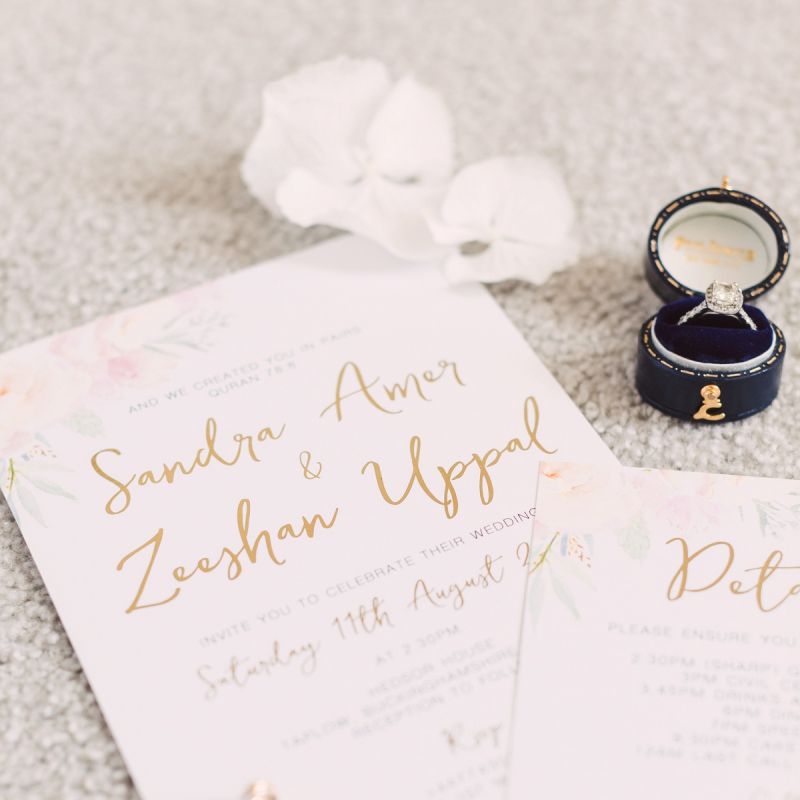 AND WE CREATED YOU IN PAIRS
QURAN 78:8
Sandra Amer
&
Zeeshan Uppal
INVITE YOU TO CELEBRATE THEIR WEDDING
Saturday 11th August 2
AT 2:30PM
HEDSOR HOUSE
TAPLOW, BUCKINGHAMSHIRE
RECEPTION TO FOLL
Deta
PLEASE ENSURE YOU
2:30PM (SHARP)
3PM CIVIL CE
3:45PM DRINKS A
6PM DIN
7PM SPEE
9:30PM CAKE
12AM LAST